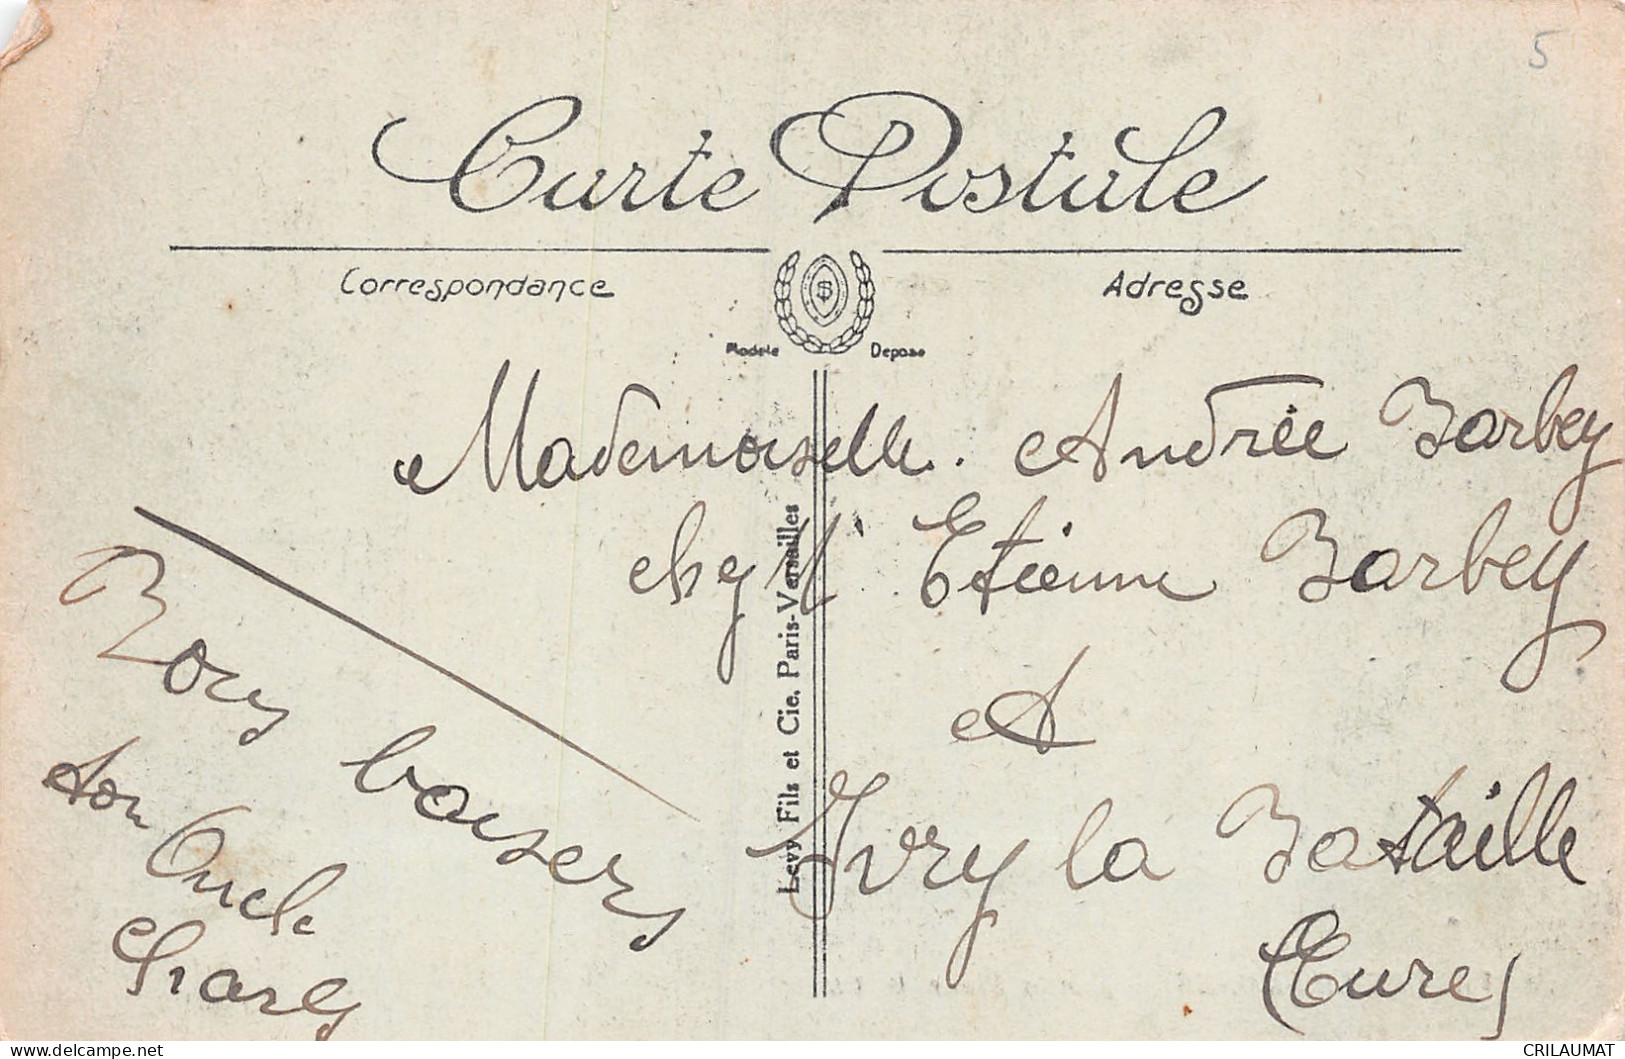 5
Carte Postale
Correspondance
Adresse
Modèle Déposé
Mademoiselle. Andrée Barbey
chez Mr Etienne Barbey
A
Ivry la Bataille
(Eure)
Bons baisers
ton Oncle
Charles
Levy Fils et Cie. Paris-Versailles
www.delcampe.net
CRILAUMAT